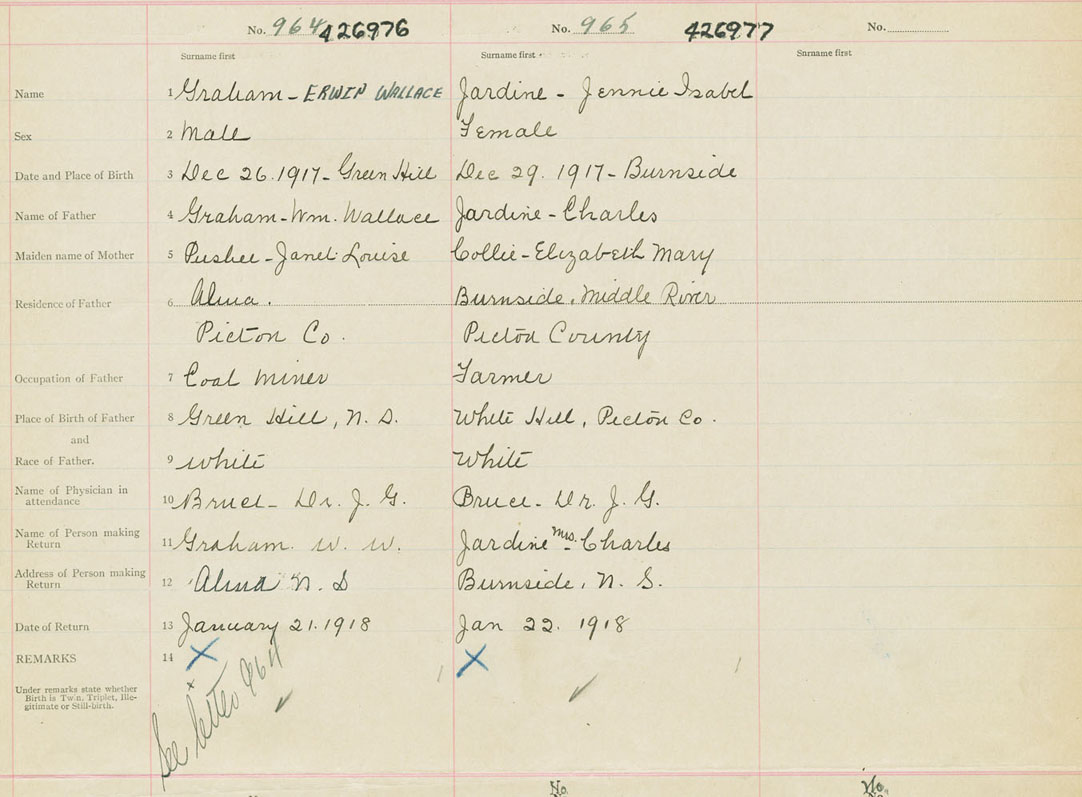 No. 964 426976 No. 965 426977 No.
Surname first Surname first Surname first
Name 1 Graham - ERWIN WALLACE Jardine - Jennie Isabel
Sex 2 Male Female
Date and Place of Birth 3 Dec 26. 1917 - Green Hill Dec 29. 1917 - Burnside
Name of Father 4 Graham - Wm. Wallace Jardine - Charles
Maiden name of Mother 5 Pushee - Janet Louise Collie - Elizabeth Mary
Residence of Father 6 Alma. Burnside, Middle River
Picton Co. Pictou County
Occupation of Father 7 Coal Miner Farmer
Place of Birth of Father 8 Green Hill, N. S. White Hill, Pictou Co.
and
Race of Father. 9 White White
Name of Physician in attendance 10 Bruce - Dr. J. G. Bruce - Dr. J. G.
Name of Person making Return 11 Graham. W. W. Jardine - Mrs. Charles
Address of Person making Return 12 Alma N. S Burnside, N. S.
Date of Return 13 January 21. 1918 Jan 22. 1918
REMARKS 14 X X
Under remarks state whether
Birth is Twin, Triplet, Ille-
gitimate or Still-birth.
x See letter 964
No. No.